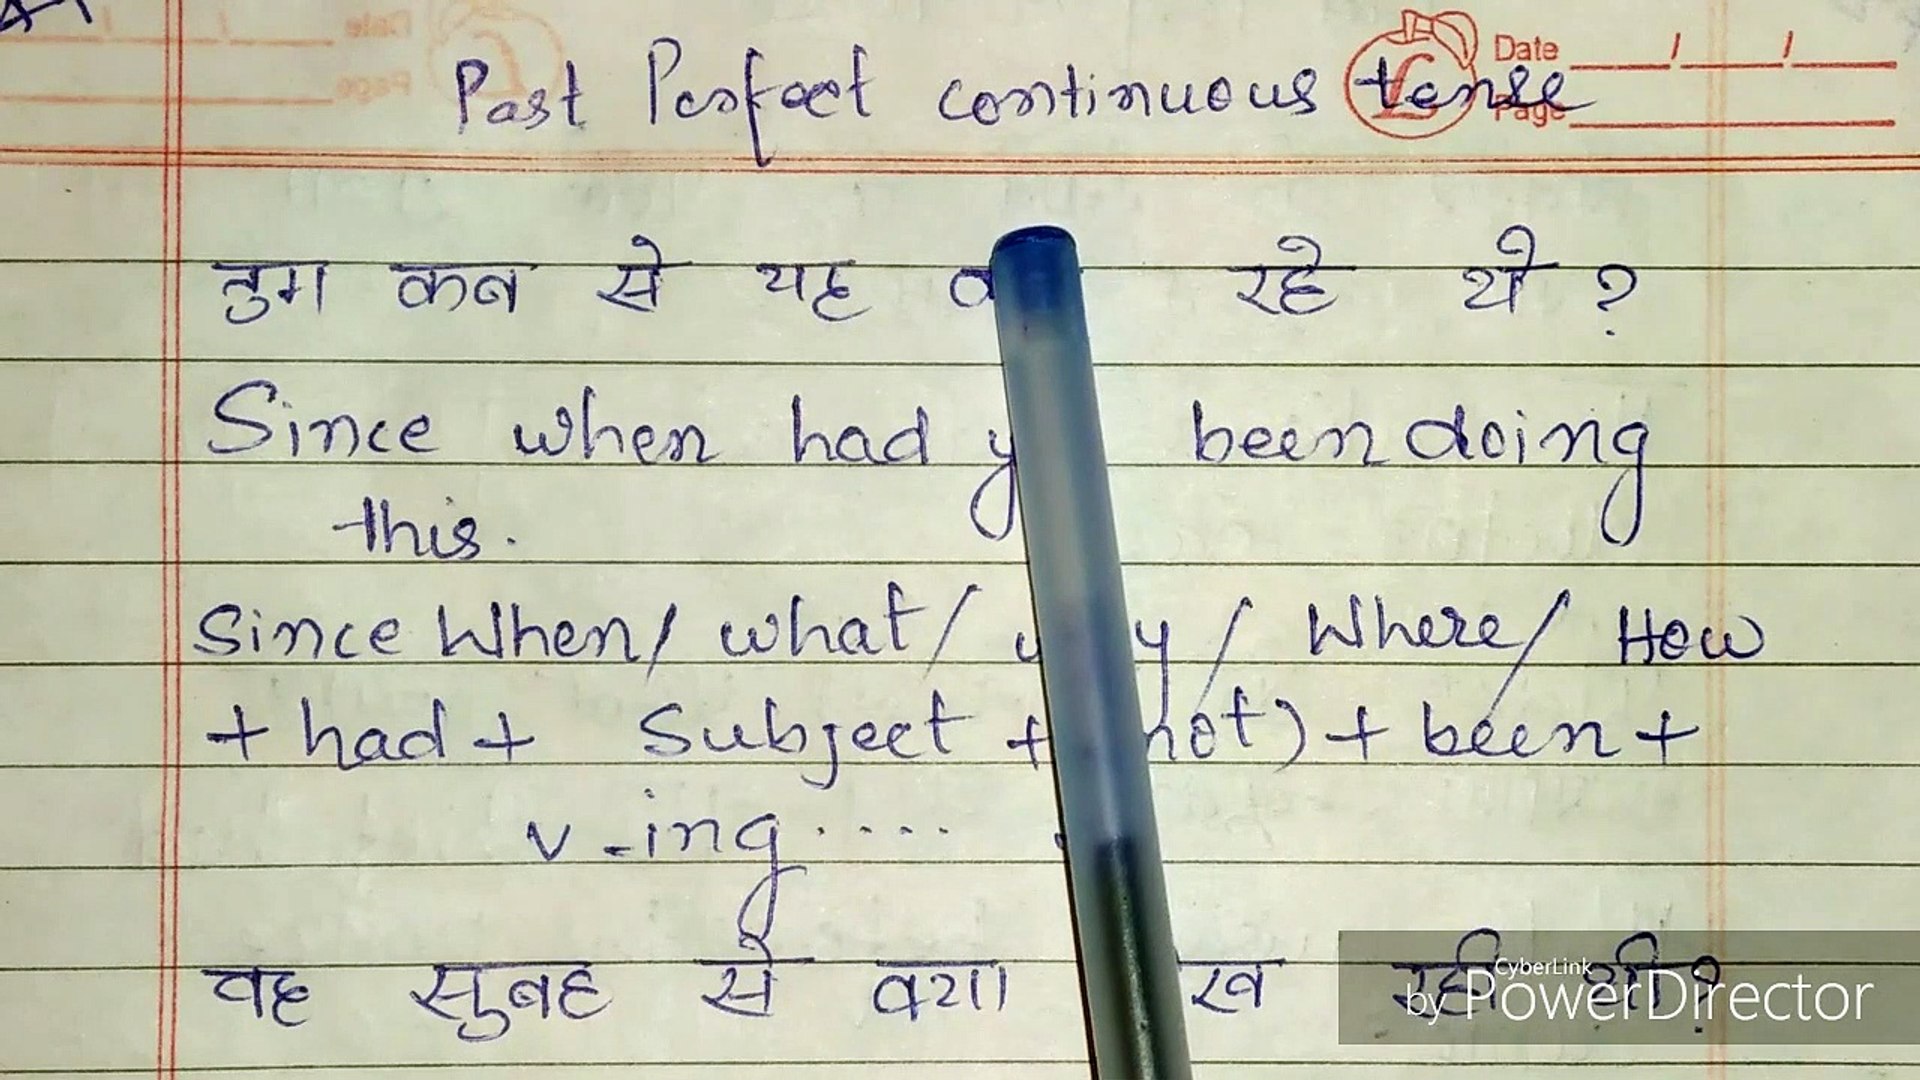 Date / /
Page
Past Perfect continuous tense
तुम कब से यह रहे थे ?
Since when had been doing
this.
Since When / what / / Where / How
+ had + Subject + not) + been +
v-ing ....
वह सुबह से क्या रही थी ?
CyberLink
by PowerDirector